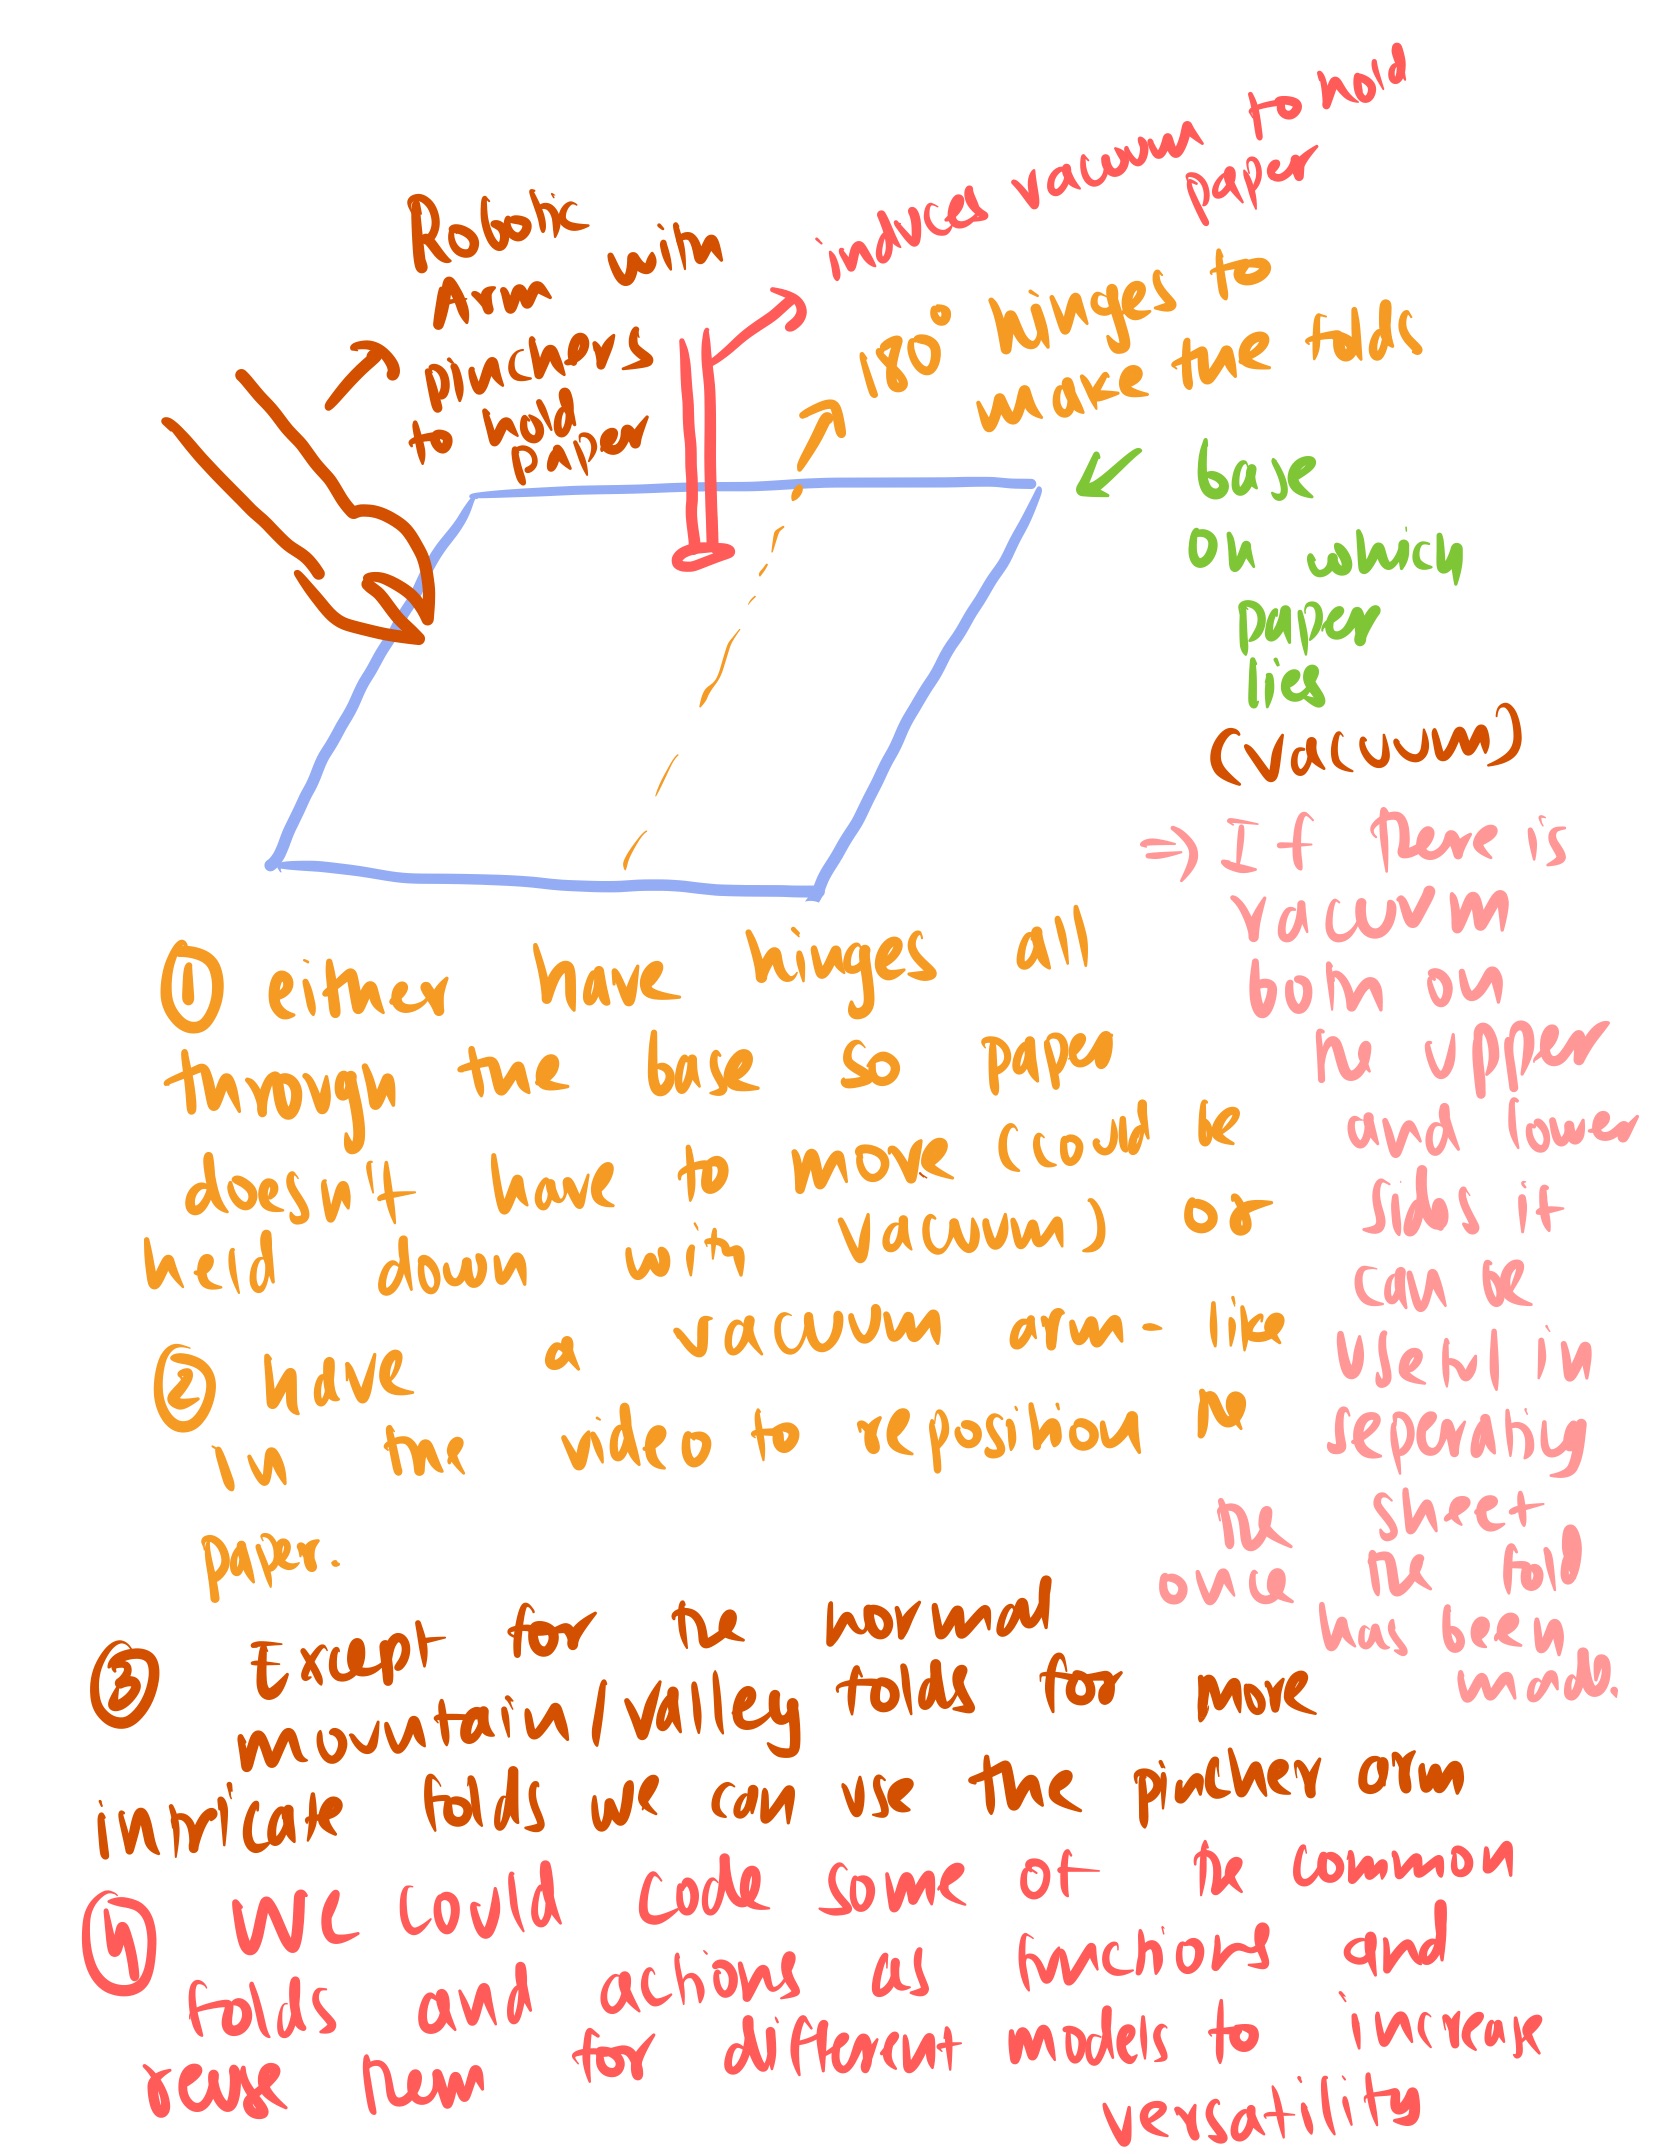 Robotic
Arm with
pinchers
to hold
paper
induces vacuum to hold
paper
180° hinges to
make the folds
base
on which
paper
lies
(vacuum)
⇒ If there is
vacuum
both on
the upper
and lower
sides it
can be
useful in
seperating
the sheet
once the fold
has been
made.
① either have hinges all
through the base so paper
doesn't have to move (could be
held down with vacuum) or
② have a vacuum arm - like
in the video to reposition the
paper.
③ Except for the normal
mountain/valley folds for more
intricate folds we can use the pincher arm
④ We could code some of the common
folds and actions as functions and
reuse them for different models to increase
versatility